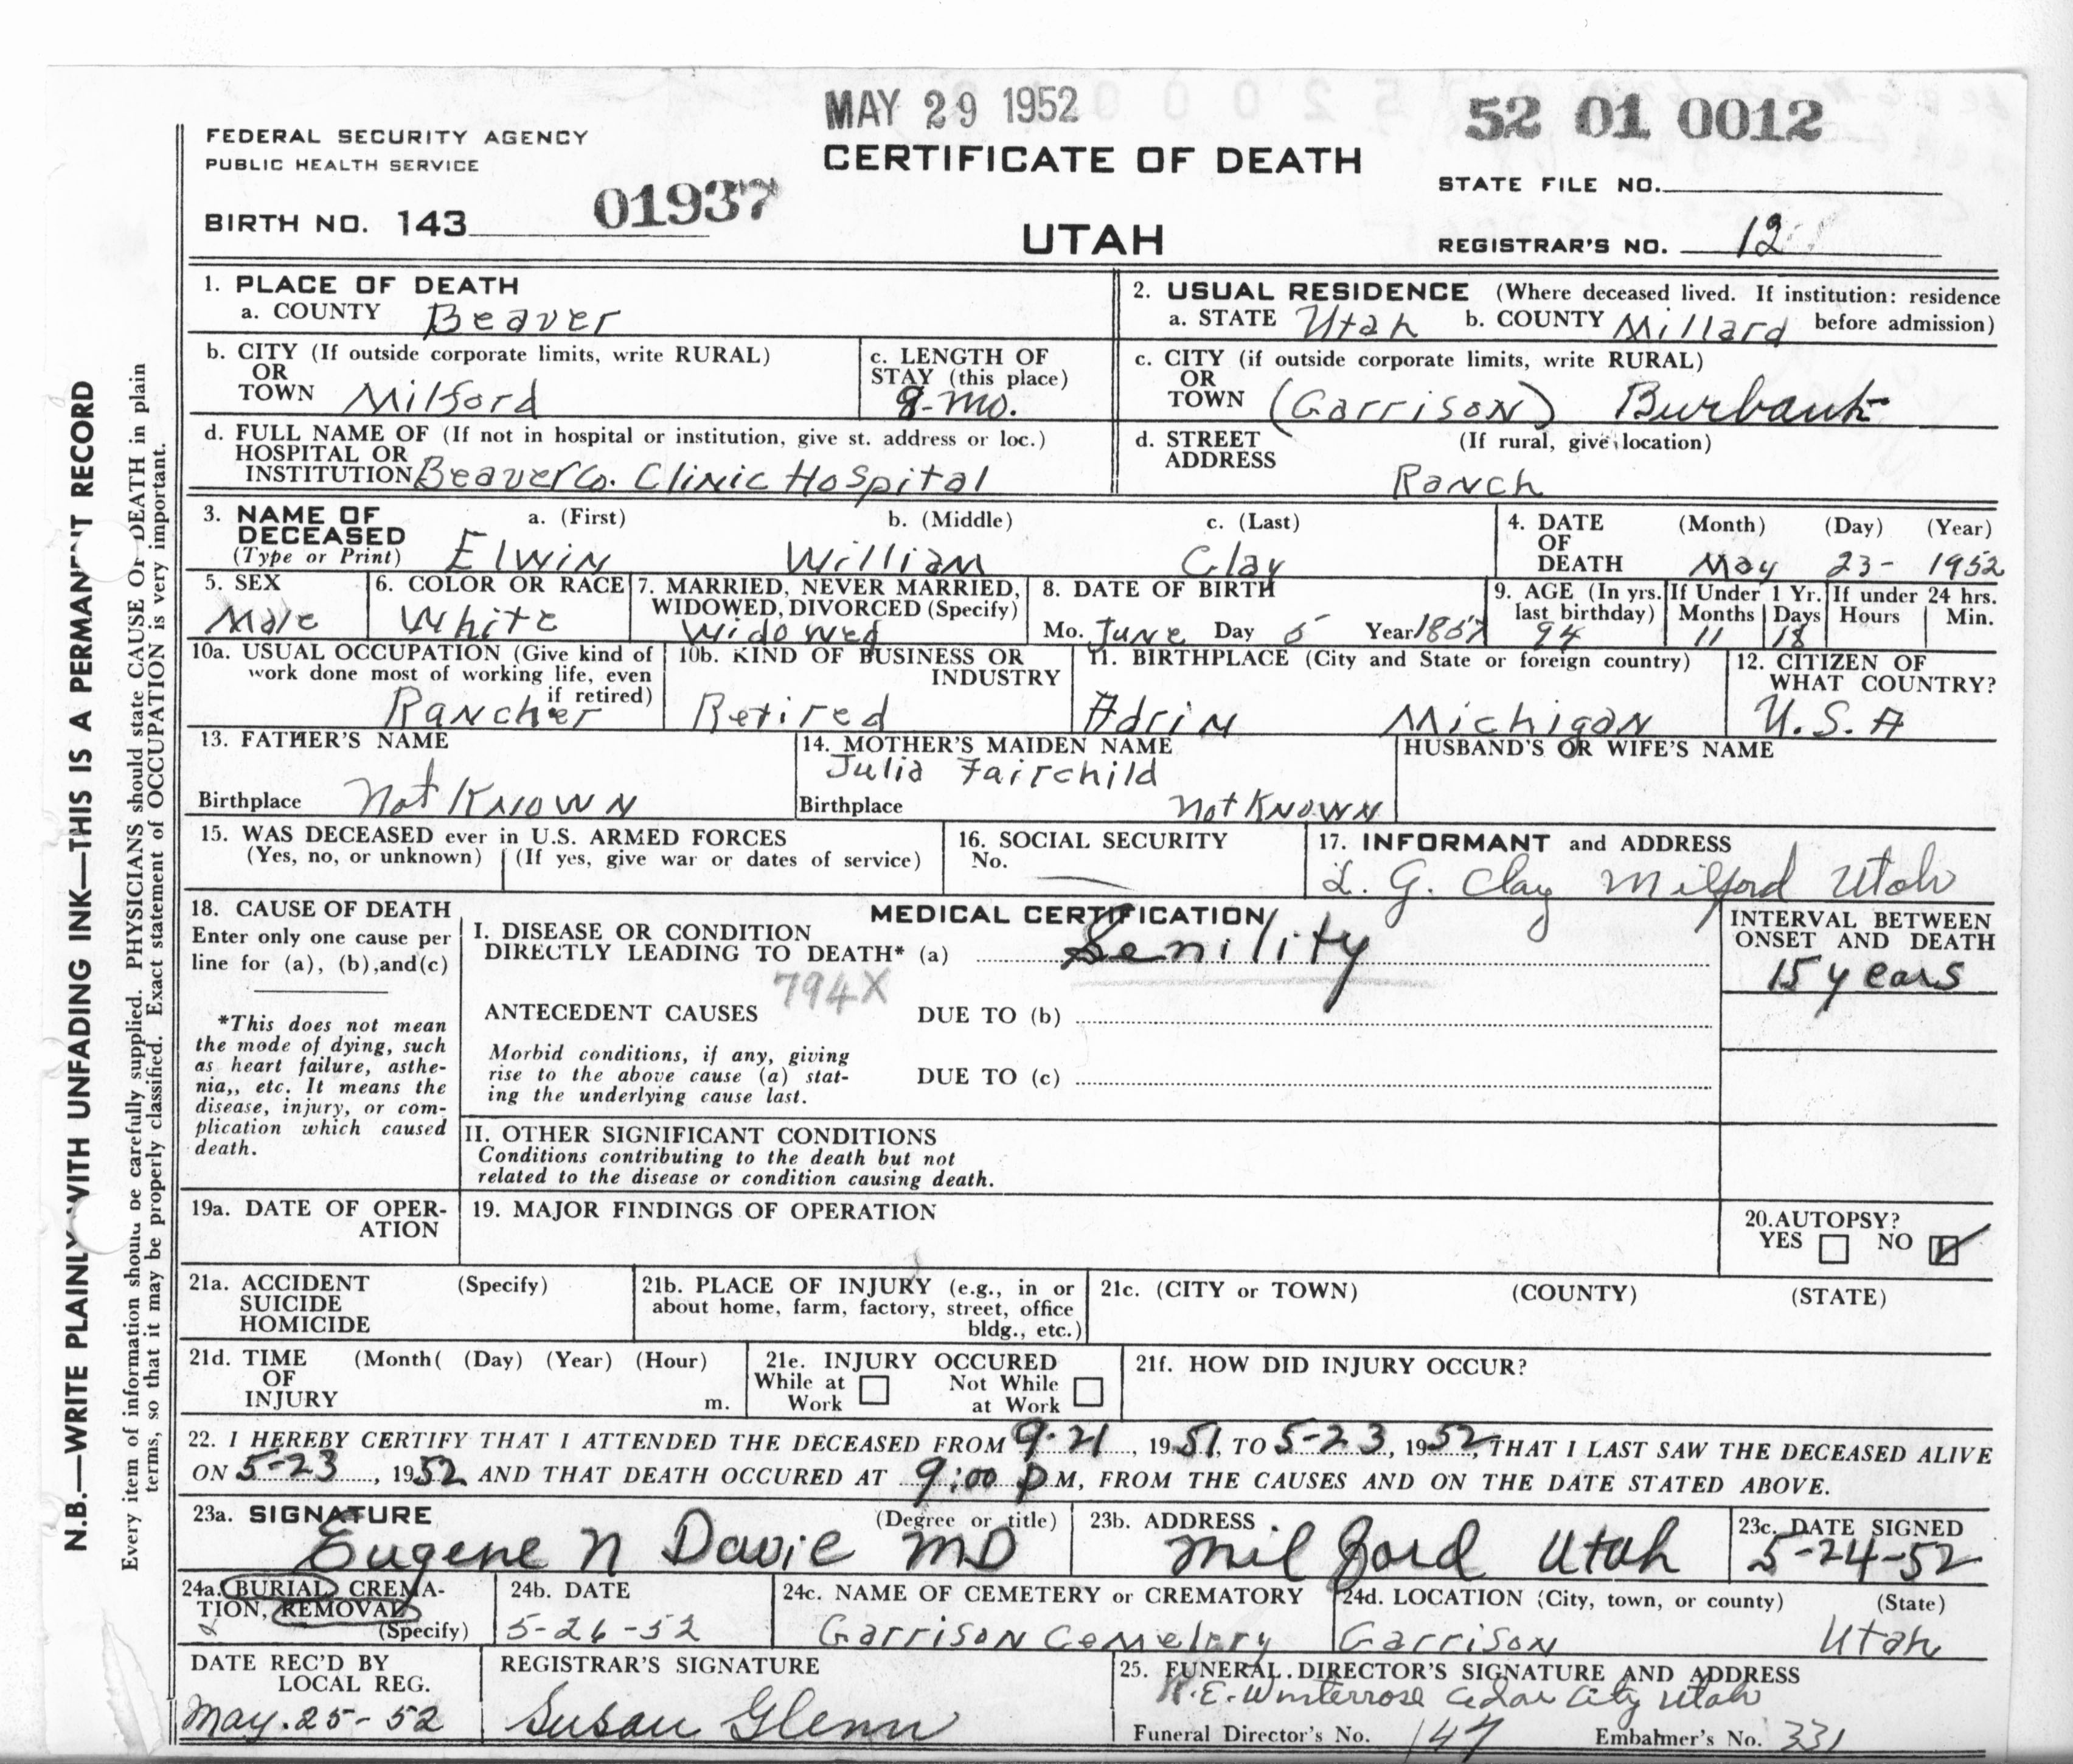 MAY 29 1952
52 01 0012
FEDERAL SECURITY AGENCY
PUBLIC HEALTH SERVICE
CERTIFICATE OF DEATH
STATE FILE NO.
BIRTH NO. 143 01937
UTAH
REGISTRAR'S NO. 12
N.B.—WRITE PLAINLY WITH UNFADING INK—THIS IS A PERMANENT RECORD
Every item of information should be carefully supplied. PHYSICIANS should state CAUSE OF DEATH in plain
terms, so that it may be properly classified. Exact statement of OCCUPATION is very important.
1. PLACE OF DEATH
a. COUNTY Beaver
2. USUAL RESIDENCE (Where deceased lived. If institution: residence
a. STATE Utah b. COUNTY Millard before admission)
b. CITY (If outside corporate limits, write RURAL)
OR
TOWN Milford
c. LENGTH OF
STAY (this place)
8-mo.
c. CITY (if outside corporate limits, write RURAL)
OR
TOWN (Garrison) Burbank
d. FULL NAME OF (If not in hospital or institution, give st. address or loc.)
HOSPITAL OR
INSTITUTION Beaver Co. Clinic Hospital
d. STREET (If rural, give location)
ADDRESS
Ranch
3. NAME OF a. (First) b. (Middle) c. (Last)
DECEASED
(Type or Print) Elwin William Clay
4. DATE (Month) (Day) (Year)
OF
DEATH May 23- 1952
5. SEX
Male
6. COLOR OR RACE
White
7. MARRIED, NEVER MARRIED,
WIDOWED, DIVORCED (Specify)
Widowed
8. DATE OF BIRTH
Mo. June Day 5 Year 1857
9. AGE (In yrs.
last birthday)
94
If Under 1 Yr.
Months Days
11 18
If under 24 hrs.
Hours Min.
10a. USUAL OCCUPATION (Give kind of
work done most of working life, even
if retired)
Rancher
10b. KIND OF BUSINESS OR
INDUSTRY
Retired
11. BIRTHPLACE (City and State or foreign country)
Adrin Michigan
12. CITIZEN OF
WHAT COUNTRY?
U.S.A
13. FATHER'S NAME
Birthplace Not Known
14. MOTHER'S MAIDEN NAME
Julia Fairchild
Birthplace Not Known
HUSBAND'S OR WIFE'S NAME
15. WAS DECEASED ever in U.S. ARMED FORCES
(Yes, no, or unknown) (If yes, give war or dates of service)
16. SOCIAL SECURITY
No.
17. INFORMANT and ADDRESS
L. G. Clay Milford Utah
18. CAUSE OF DEATH
Enter only one cause per
line for (a), (b),and(c)
*This does not mean
the mode of dying, such
as heart failure, asthe-
nia,, etc. It means the
disease, injury, or com-
plication which caused
death.
MEDICAL CERTIFICATION
I. DISEASE OR CONDITION
DIRECTLY LEADING TO DEATH* (a) Senility
794X
ANTECEDENT CAUSES DUE TO (b)
Morbid conditions, if any, giving
rise to the above cause (a) stat- DUE TO (c)
ing the underlying cause last.
INTERVAL BETWEEN
ONSET AND DEATH
15 years
II. OTHER SIGNIFICANT CONDITIONS
Conditions contributing to the death but not
related to the disease or condition causing death.
19a. DATE OF OPER-
ATION
19. MAJOR FINDINGS OF OPERATION
20. AUTOPSY?
YES NO
21a. ACCIDENT (Specify)
SUICIDE
HOMICIDE
21b. PLACE OF INJURY (e.g., in or
about home, farm, factory, street, office
bldg., etc.)
21c. (CITY or TOWN) (COUNTY) (STATE)
21d. TIME (Month( (Day) (Year) (Hour)
OF
INJURY m.
21e. INJURY OCCURED
While at Not While
Work at Work
21f. HOW DID INJURY OCCUR?
22. I HEREBY CERTIFY THAT I ATTENDED THE DECEASED FROM 9-21, 1951, TO 5-23, 1952, THAT I LAST SAW THE DECEASED ALIVE
ON 5-23, 1952 AND THAT DEATH OCCURED AT 9:00 P M, FROM THE CAUSES AND ON THE DATE STATED ABOVE.
23a. SIGNATURE (Degree or title)
Eugene N Davie MD
23b. ADDRESS
Milford Utah
23c. DATE SIGNED
5-24-52
24a. BURIAL, CREMA-
TION, REMOVAL
(Specify)
24b. DATE
5-26-52
24c. NAME OF CEMETERY or CREMATORY
Garrison Cemetery
24d. LOCATION (City, town, or county) (State)
Garrison Utah
DATE REC'D BY
LOCAL REG.
May.25-52
REGISTRAR'S SIGNATURE
Susan Glenn
25. FUNERAL DIRECTOR'S SIGNATURE AND ADDRESS
E. Winterrose Cedar City Utah
Funeral Director's No. 147 Embalmer's No. 331